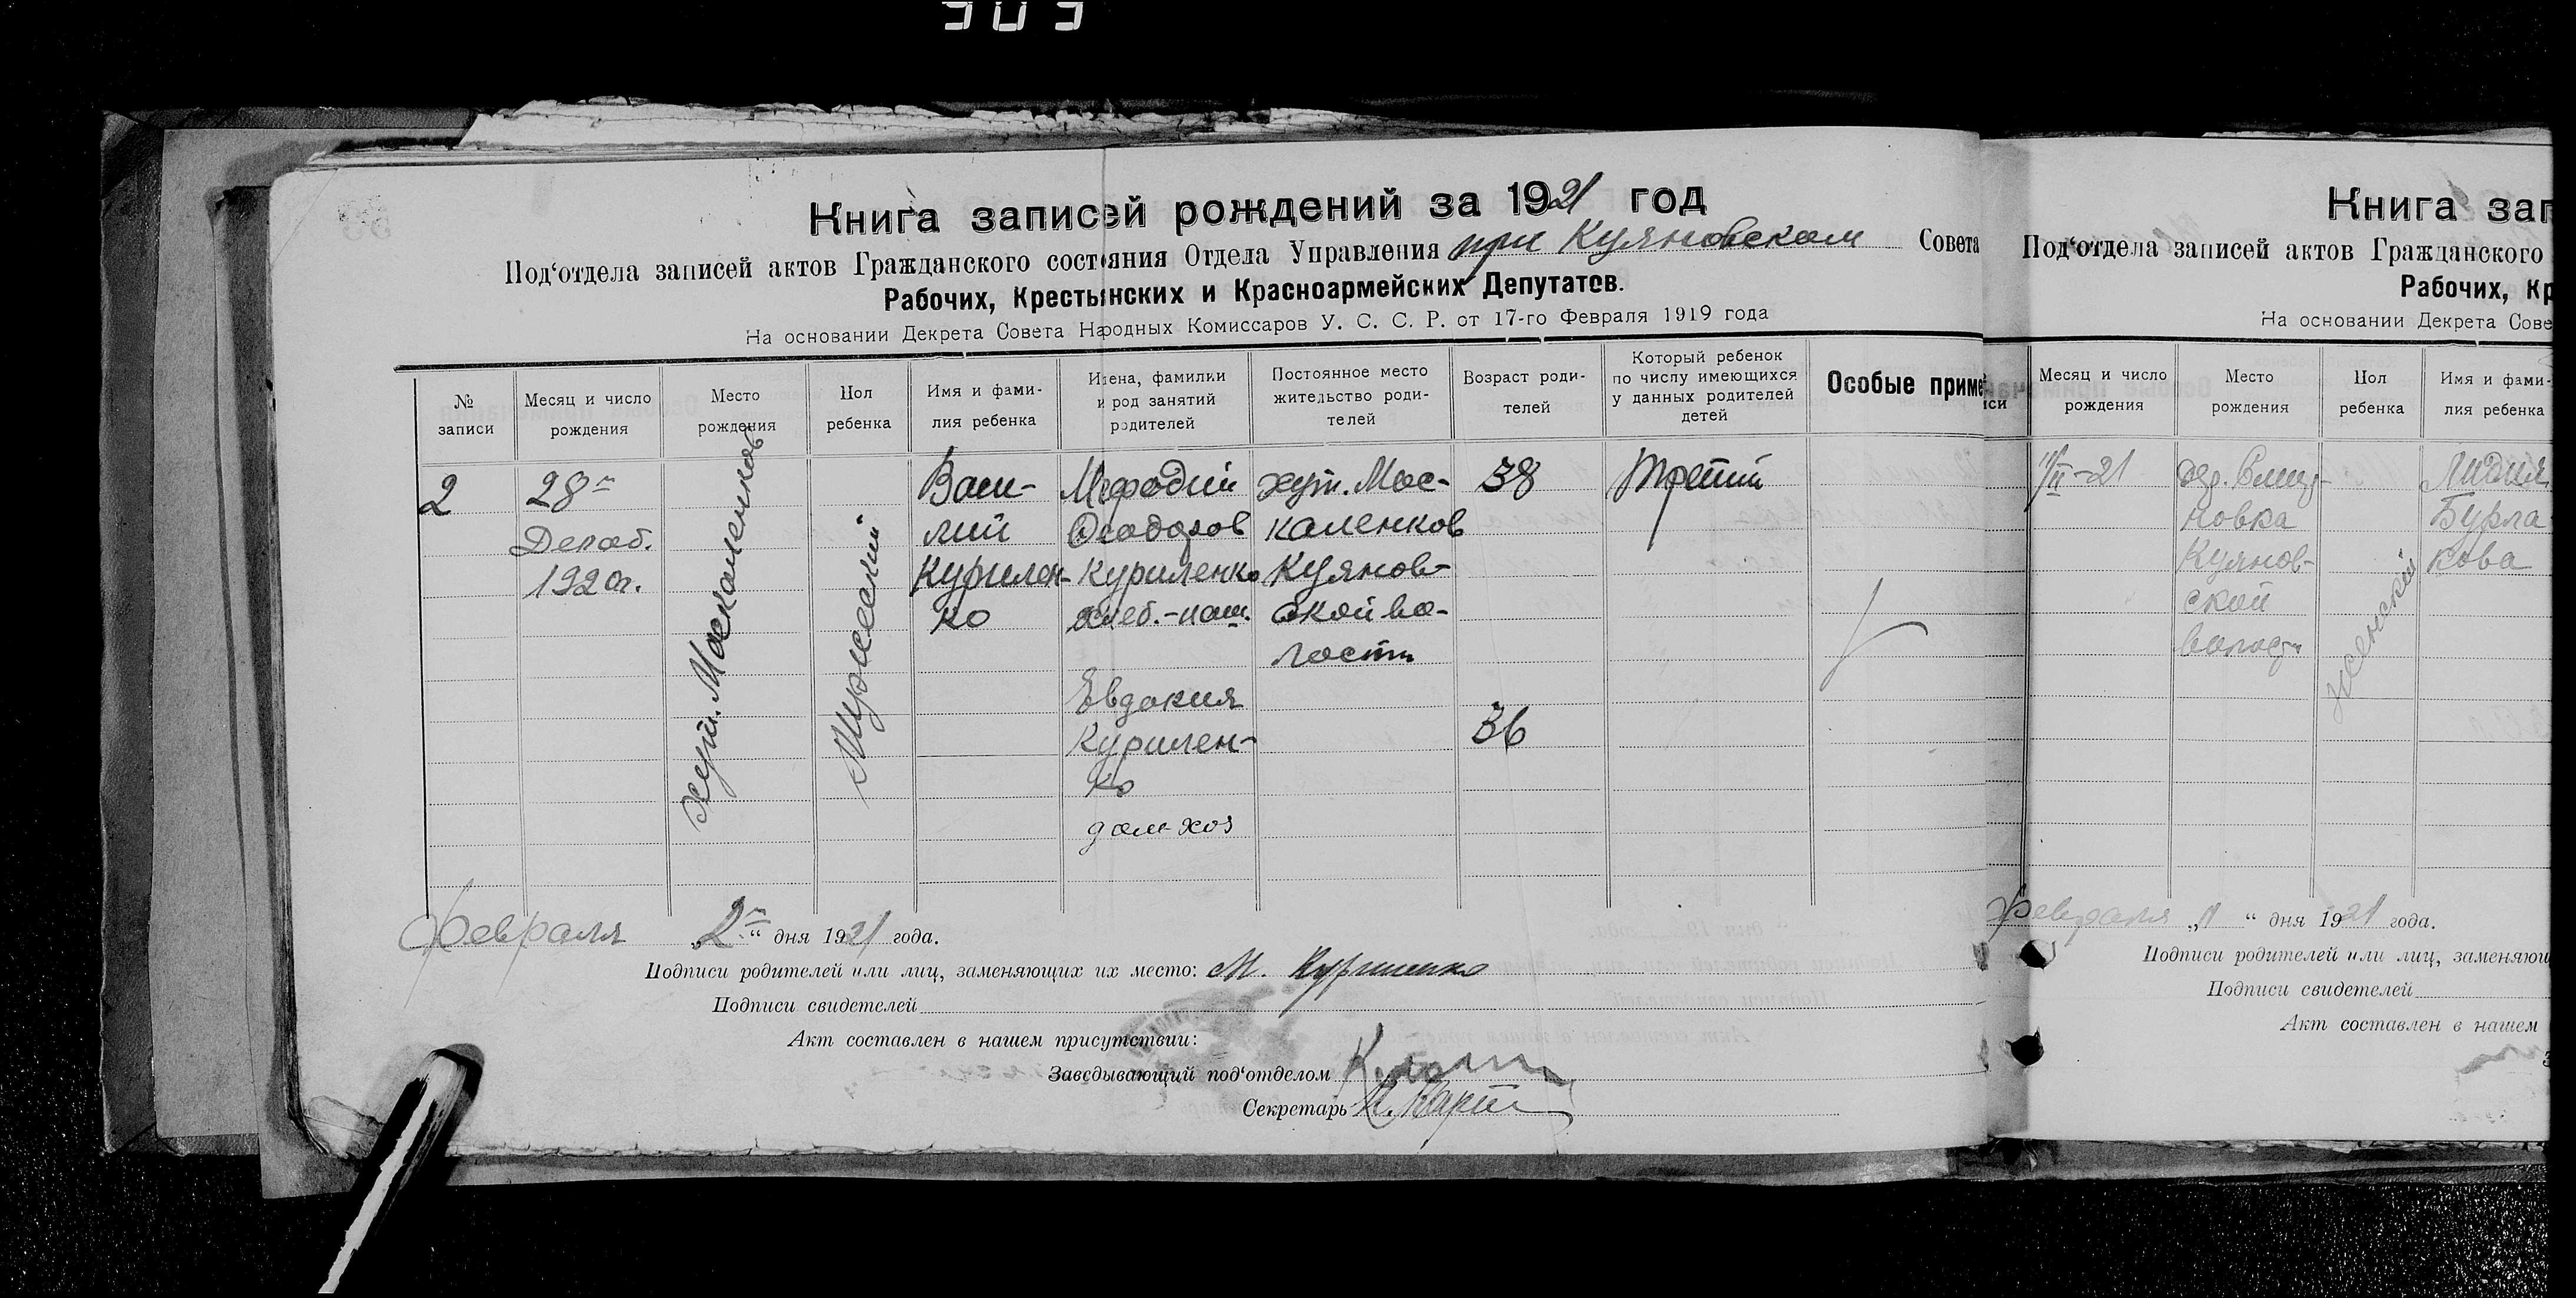 303
Книга записей рождений за 1921 год
Под‘отдела записей актов Гражданского состояния Отдела Управления при Куяновском Совета
Рабочих, Крестьянских и Красноармейских Депутатов.
На основании Декрета Совета Народных Комиссаров У. С. С. Р. от 17-го Февраля 1919 года
№ записи
Месяц и число рождения
Место рождения
Пол ребенка
Имя и фами-
лия ребенка
Имена, фамилии
и род занятий
родителей
Постоянное место
жительство роди-
телей
Возраст роди-
телей
Который ребенок
по числу имеющихся
у данных родителей
детей
Особые приме
2
28го
Декаб.
1920г.
хут. Москаленков
Мужеский
Васи-
лий
Курилен-
ко
Мефодий
Феодоров
Куриленко
хлеб.-паш.
Евдокия
Курилен-
ко
дом-хоз
хут. Мос-
каленков
Куянов-
ской во-
лости
38
36
Третий
Февраля „2го“ дня 1921 года.
Подписи родителей или лиц, заменяющих их место: М. Куриленко
Подписи свидетелей
Акт составлен в нашем присутствии:
Заведывающий под‘отделом
Секретарь
Книга зап
Под‘отдела записей актов Гражданского
Рабочих, Кр
На основании Декрета Сове
иси
Месяц и число
рождения
Место
рождения
Пол
ребенка
Имя и фами-
лия ребенка
-21
новка
Куянов-
ской
волости
женский
Лидия
Бурла
кова
Февраля „11“ дня 1921 года.
Подписи родителей или лиц, заменяющ
Подписи свидетелей
Акт составлен в нашем